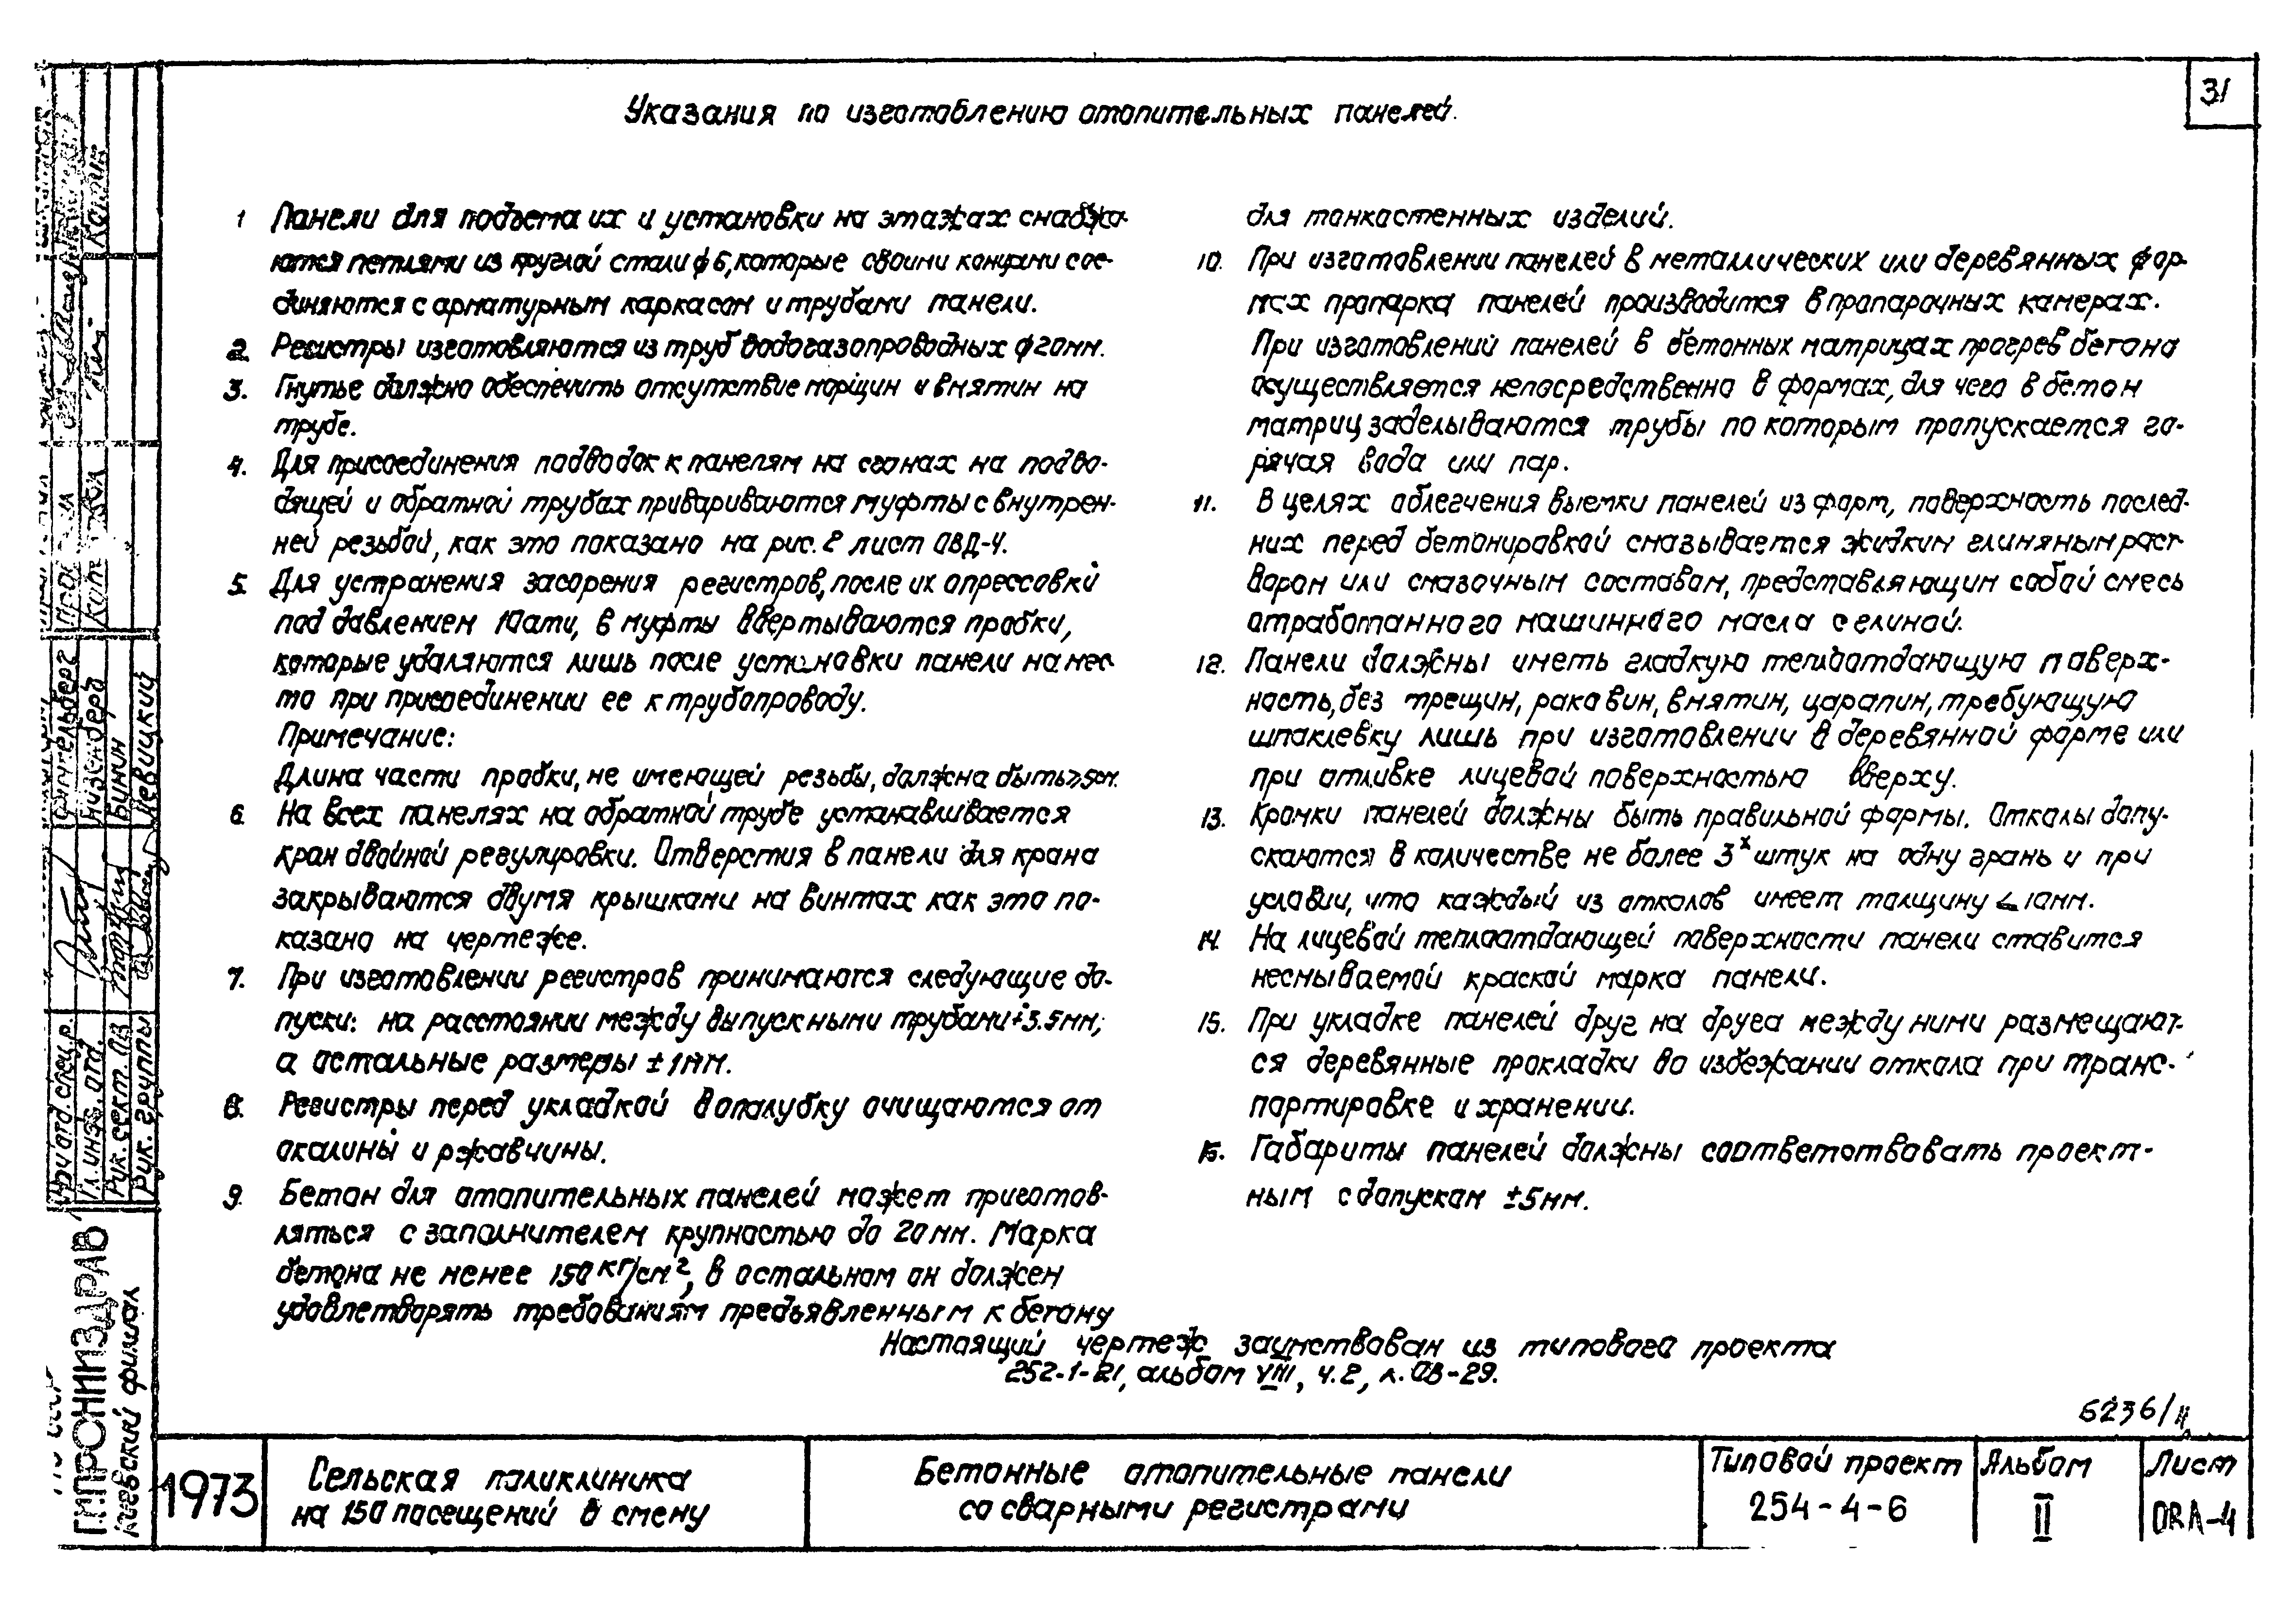 31
Указания по изготовлению отопительных панелей.
1 Панели для подъема их и установки на этажах снабжа-
ются петлями из круглой стали ф6, которые своими концами сое-
диняются с арматурным каркасом и трубами панели.
2. Регистры изготовляются из труб водогазопроводных ф20мм.
3. Гнутье должно обеспечить отсутствие морщин и вмятин на
трубе.
4. Для присоединения подводок к панелям на сгонах на подво-
дящей и обратной трубах привариваются муфты с внутрен-
ней резьбой, как это показано на рис. 2 лист ОВД-4.
5. Для устранения засорения регистров, после их опрессовки
под давлением 10ати, в муфты ввертываются пробки,
которые удаляются лишь после установки панели на мес-
то при присоединении ее к трубопроводу.
Примечание:
Длина части пробки, не имеющей резьбы, должна быть ≥5см.
6. На всех панелях на обратной трубе устанавливается
кран двойной регулировки. Отверстия в панели для крана
закрываются двумя крышками на винтах как это по-
казано на чертеже.
7. При изготовлении регистров принимаются следующие до-
пуски: на расстоянии между выпускными трубами ±3.5мм;
а остальные размеры ±1мм.
8. Регистры перед укладкой в опалубку очищаются от
окалины и ржавчины.
9. Бетон для отопительных панелей может приготов-
ляться с заполнителем крупностью до 20мм. Марка
бетона не менее 150 кг/см², в остальном он должен
удовлетворять требованиям предъявленным к бетону
для тонкостенных изделий.
10. При изготовлении панелей в металлических или деревянных фор-
мах пропарка панелей производится в пропарочных камерах.
При изготовлений панелей в бетонных матрицах прогрев бетона
осуществляется непосредственно в формах, для чего в бетон
матриц заделываются трубы по которым пропускается го-
рячая вода или пар.
11. В целях облегчения выемки панелей из форм, поверхность послед-
них перед бетонировкой смазывается жидким глиняным раст-
вором или смазочным составом, представляющим собой смесь
отработанного машинного масла с глиной.
12. Панели должны иметь гладкую теплоотдающую поверх-
ность, без трещин, раковин, вмятин, царапин, требующую
шпаклевку лишь при изготовлении в деревянной форме или
при отливке лицевой поверхностью вверху.
13. Кромки панелей должны быть правильной формы. Отколы допу-
скаются в количестве не более 3х штук на одну грань и при
условии, что каждый из отколов имеет толщину ∠ 10мм.
14. На лицевой теплоотдающей поверхности панели ставится
несмываемой краской марка панели.
15. При укладке панелей друг на друга между ними размещают-
ся деревянные прокладки во избежании откола при транс-
портировке и хранении.
16. Габариты панелей должны соответствовать проект-
ным с допуском ±5мм.
Настоящий чертеж заимствован из типового проекта
252-1-21, альбом VIII, ч. 2, л. ОВ-29.
6236/II
1973
Сельская поликлиника
на 150 посещений в смену
Бетонные отопительные панели
со сварными регистрами
Типовой проект
254-4-6
Альбом
II
Лист
Гл. инж. отд.
Рук. сект. ОВ
Рук. группы
Бунин
Левицкий
ГИПРОНИИЗДРАВ
Киевский филиал